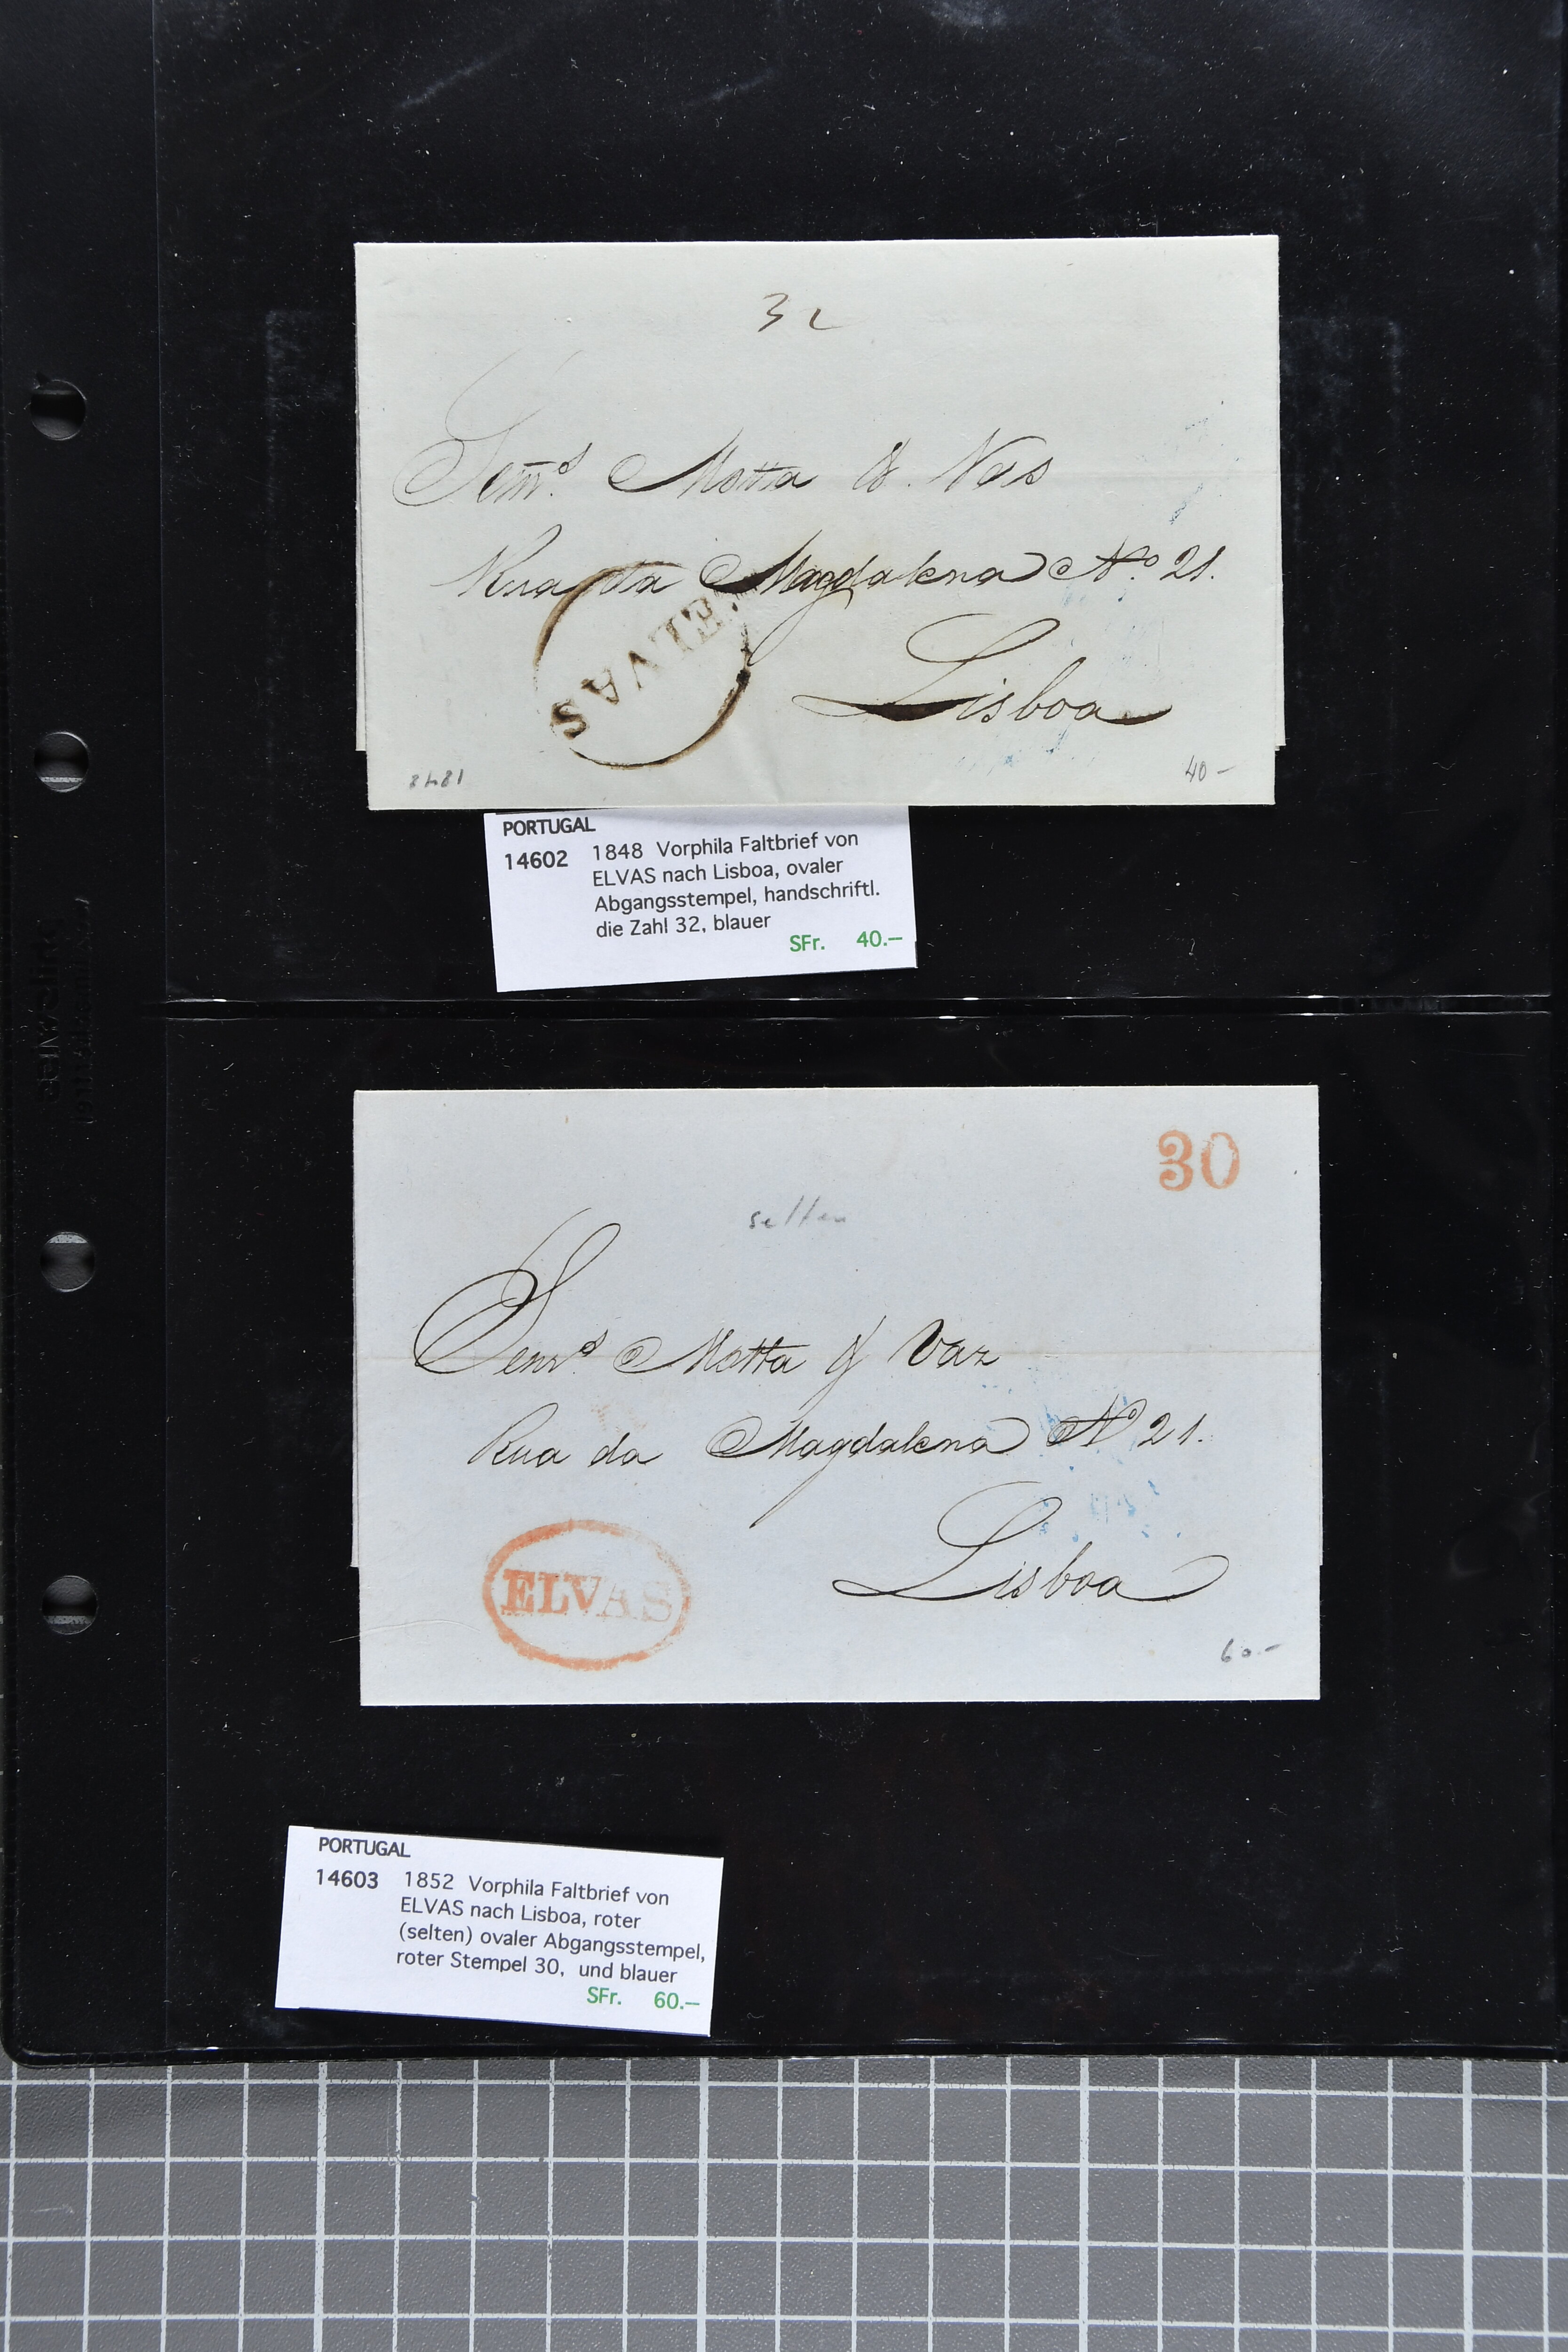 32
Senrs. Motta & Vas
Rua da Magdalena No. 21.
ELVAS
Lisboa
1848
40-
PORTUGAL
14602 1848 Vorphila Faltbrief von
ELVAS nach Lisboa, ovaler
Abgangsstempel, handschriftl.
die Zahl 32, blauer
SFr. 40.--
30
selten
Senrs. Motta & Vaz
Rua da Magdalena No 21.
Lisboa
ELVAS
60.-
PORTUGAL
14603 1852 Vorphila Faltbrief von
ELVAS nach Lisboa, roter
(selten) ovaler Abgangsstempel,
roter Stempel 30, und blauer
SFr. 60.--